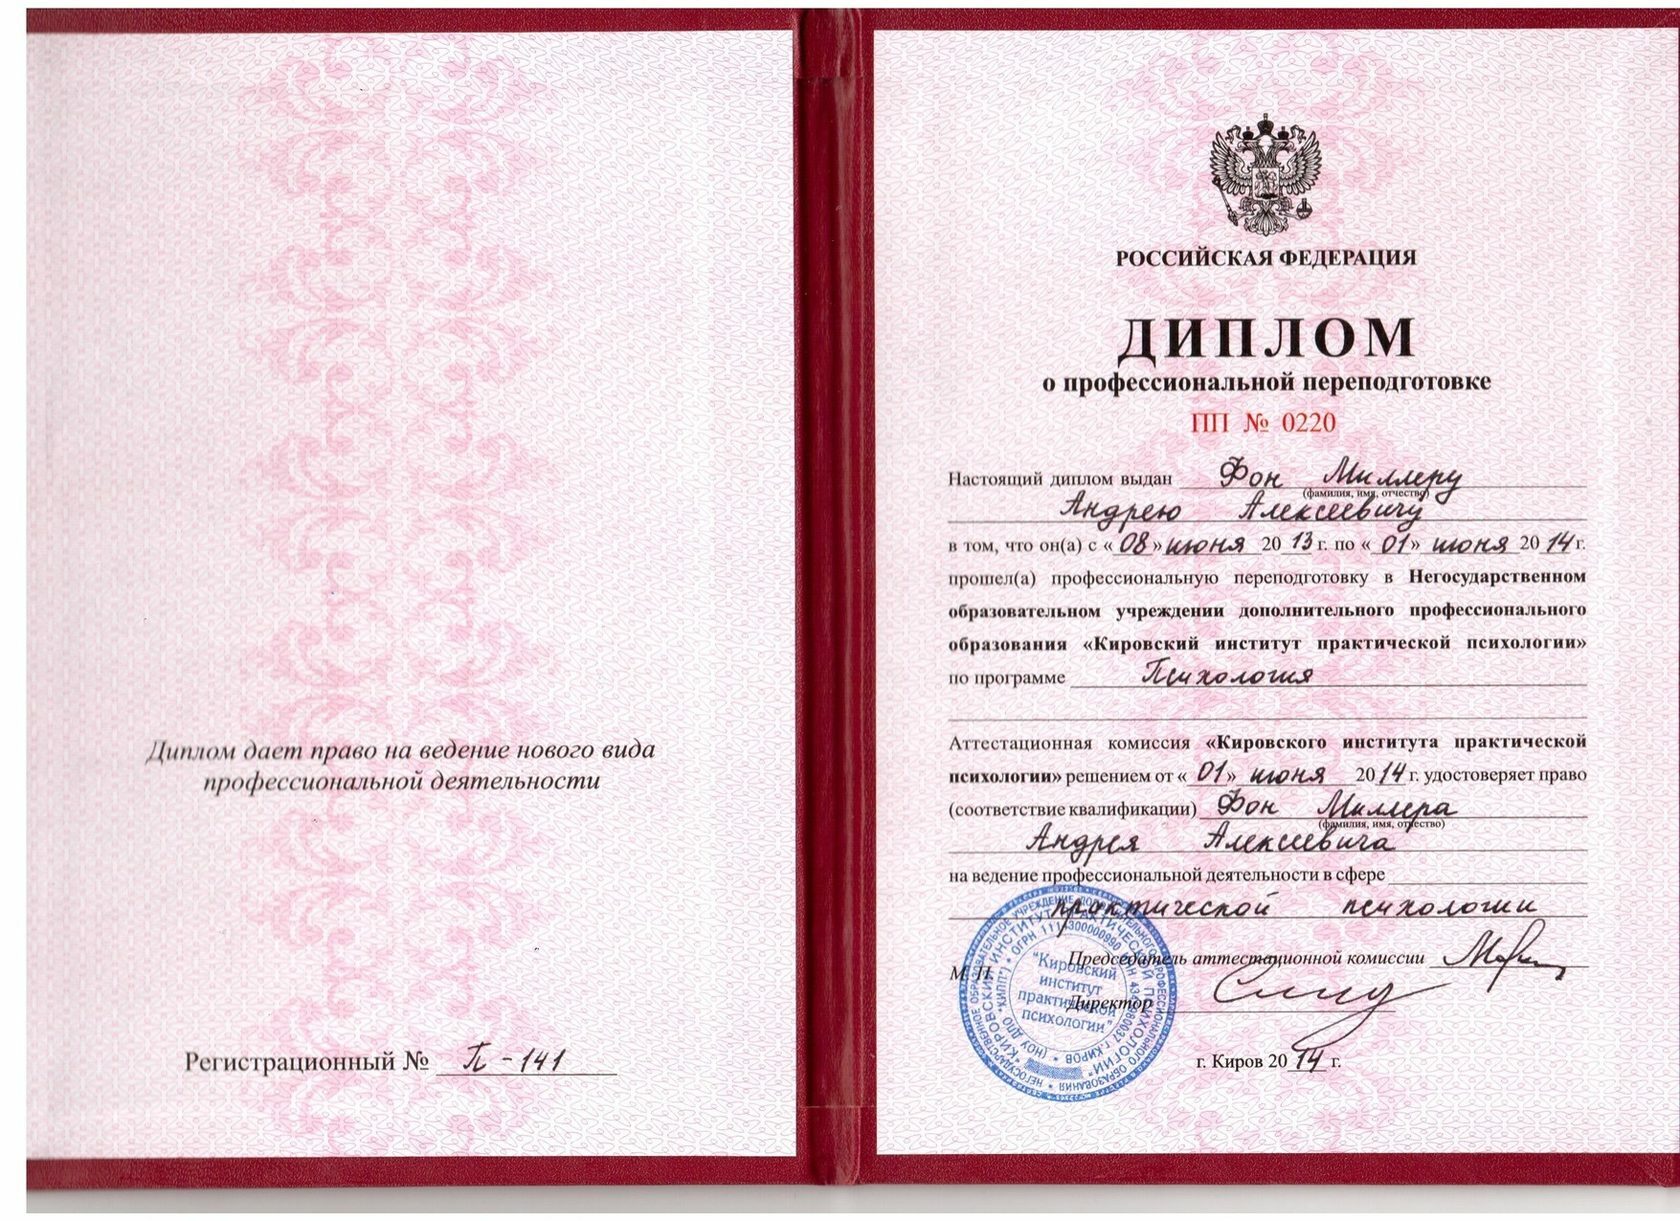 Диплом дает право на ведение нового вида
профессиональной деятельности
Регистрационный № П - 141
РОССИЙСКАЯ ФЕДЕРАЦИЯ
ДИПЛОМ
о профессиональной переподготовке
ПП № 0220
Настоящий диплом выдан Фон Миллеру
(фамилия, имя, отчество)
Андрею Алексеевичу
в том, что он(а) с «08» июня 2013 г. по «01» июня 2014 г.
прошел(а) профессиональную переподготовку в Негосударственном
образовательном учреждении дополнительного профессионального
образования «Кировский институт практической психологии»
по программе Психология
Аттестационная комиссия «Кировского института практической
психологии» решением от «01» июня 2014 г. удостоверяет право
(соответствие квалификации) Фон Миллера
(фамилия, имя, отчество)
Андрея Алексеевича
на ведение профессиональной деятельности в сфере
практической психологии
Председатель аттестационной комиссии
М. П.
Директор
г. Киров 2014 г.
"Кировский
институт
практической
психологии"